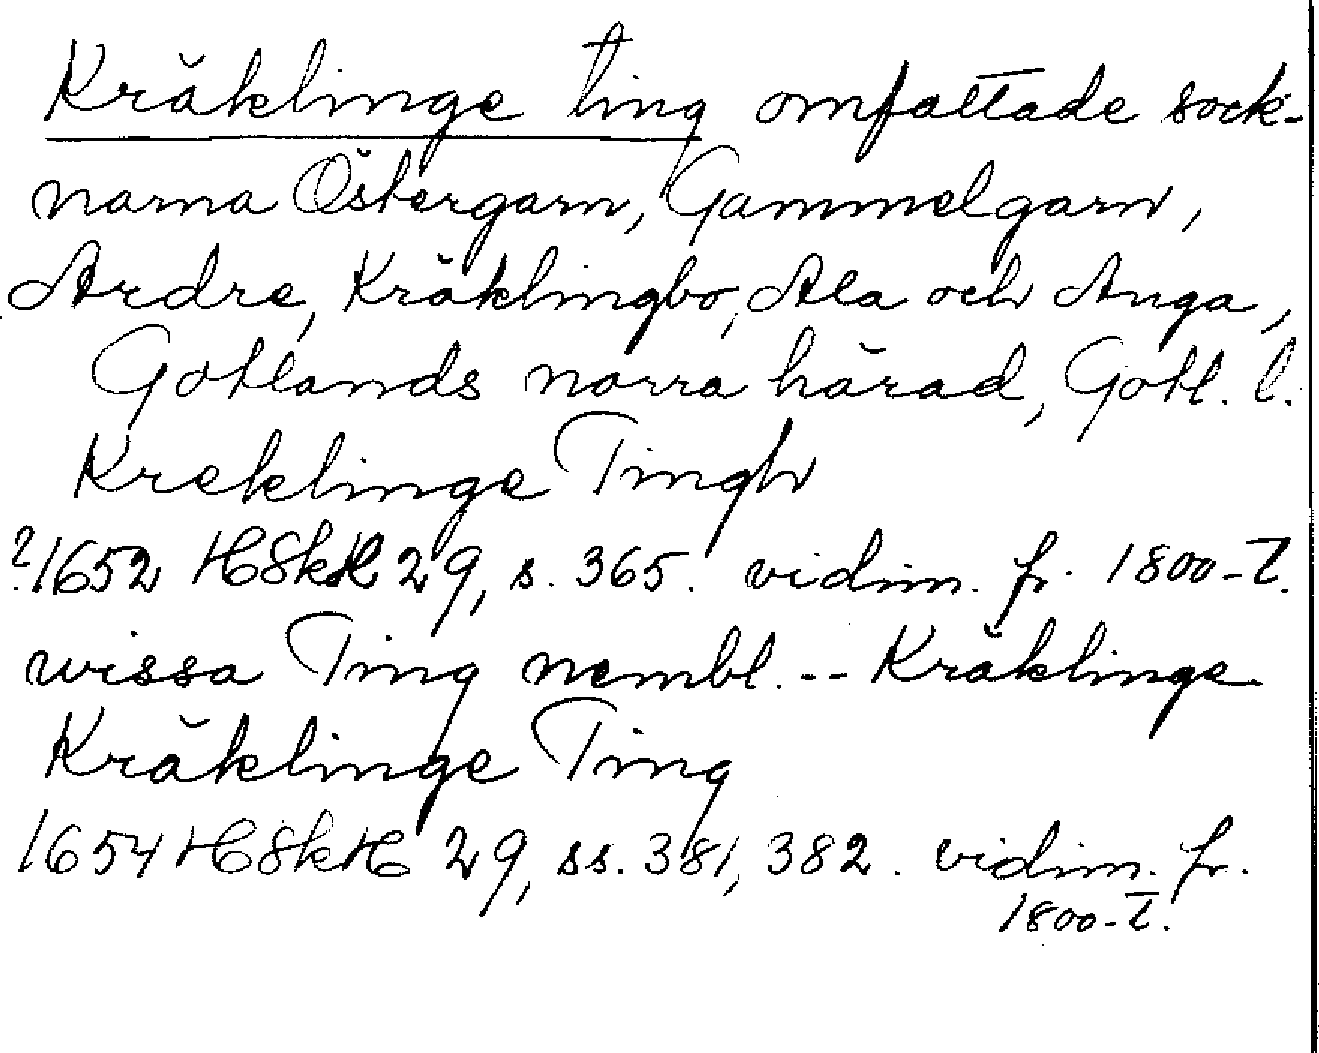 Kräklinge ting omfattade sock-
narna Östergarn, Gammelgarn,
Ardre, Kräklingbo, Ala och Anga,
Gotlands norra härad, Gotl. l.
Kreklinge Tingh
?1652 HSkH 29, s. 365. vidim. fr. 1800-t.
wissa Ting nembl. -- Kräklinge
Kräklinge Ting
1654 HSkH 29, ss. 381, 382. vidim. fr.
1800-t.